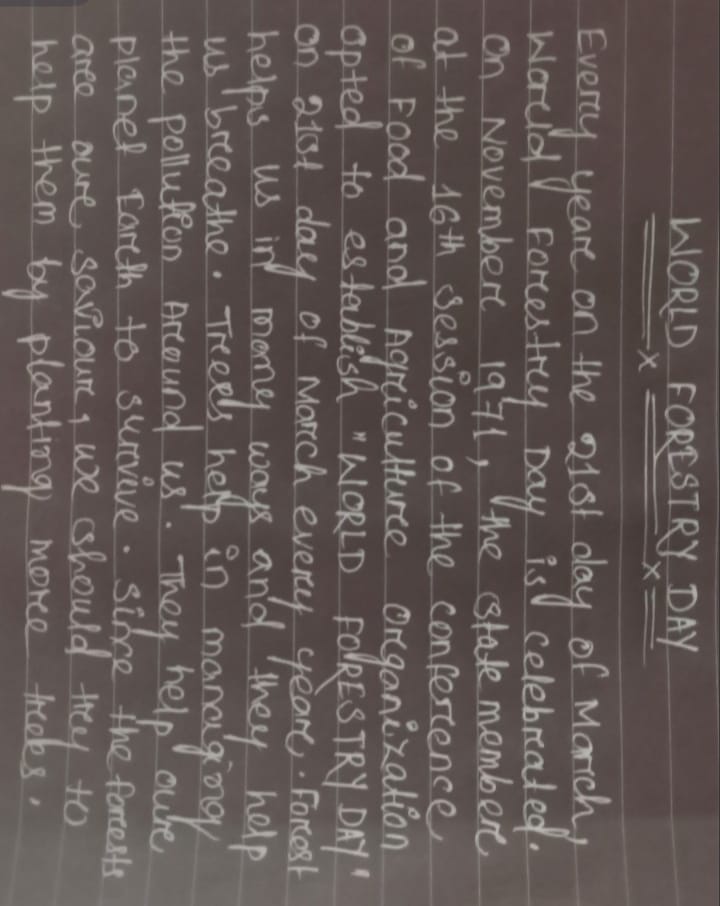 WORLD FORESTRY DAY
Every year on the 21st day of March,
World Forestry Day is celebrated.
On November 1971, the State member
at the 16th session of the conference
of Food and Agriculture Organization
opted to establish "WORLD FORESTRY DAY"
on 21st day of March every year. Forest
helps us in many ways and they help
us breathe. Trees help in managing
the pollution Around us. They help our
planet Earth to survive. Since the forests
are our saviour, we should try to
help them by planting more trees.